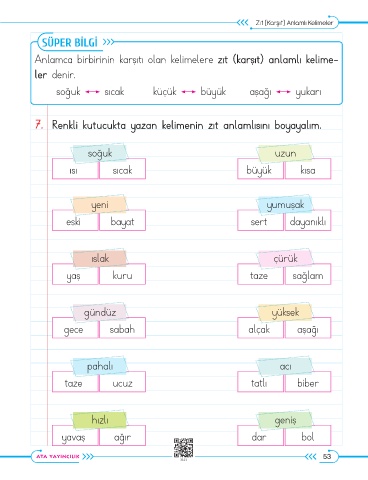 Zıt (Karşıt) Anlamlı Kelimeler
SÜPER BİLGİ
Anlamca birbirinin karşıtı olan kelimelere zıt (karşıt) anlamlı kelime-
ler denir.
soğuk ↔ sıcak küçük ↔ büyük aşağı ↔ yukarı
7. Renkli kutucukta yazan kelimenin zıt anlamlısını boyayalım.
soğuk uzun
ısı sıcak büyük kısa
yeni yumuşak
eski bayat sert dayanıklı
ıslak çürük
yaş kuru taze sağlam
gündüz yüksek
gece sabah alçak aşağı
pahalı acı
taze ucuz tatlı biber
hızlı geniş
yavaş ağır dar bol
ATA YAYINCILIK 53